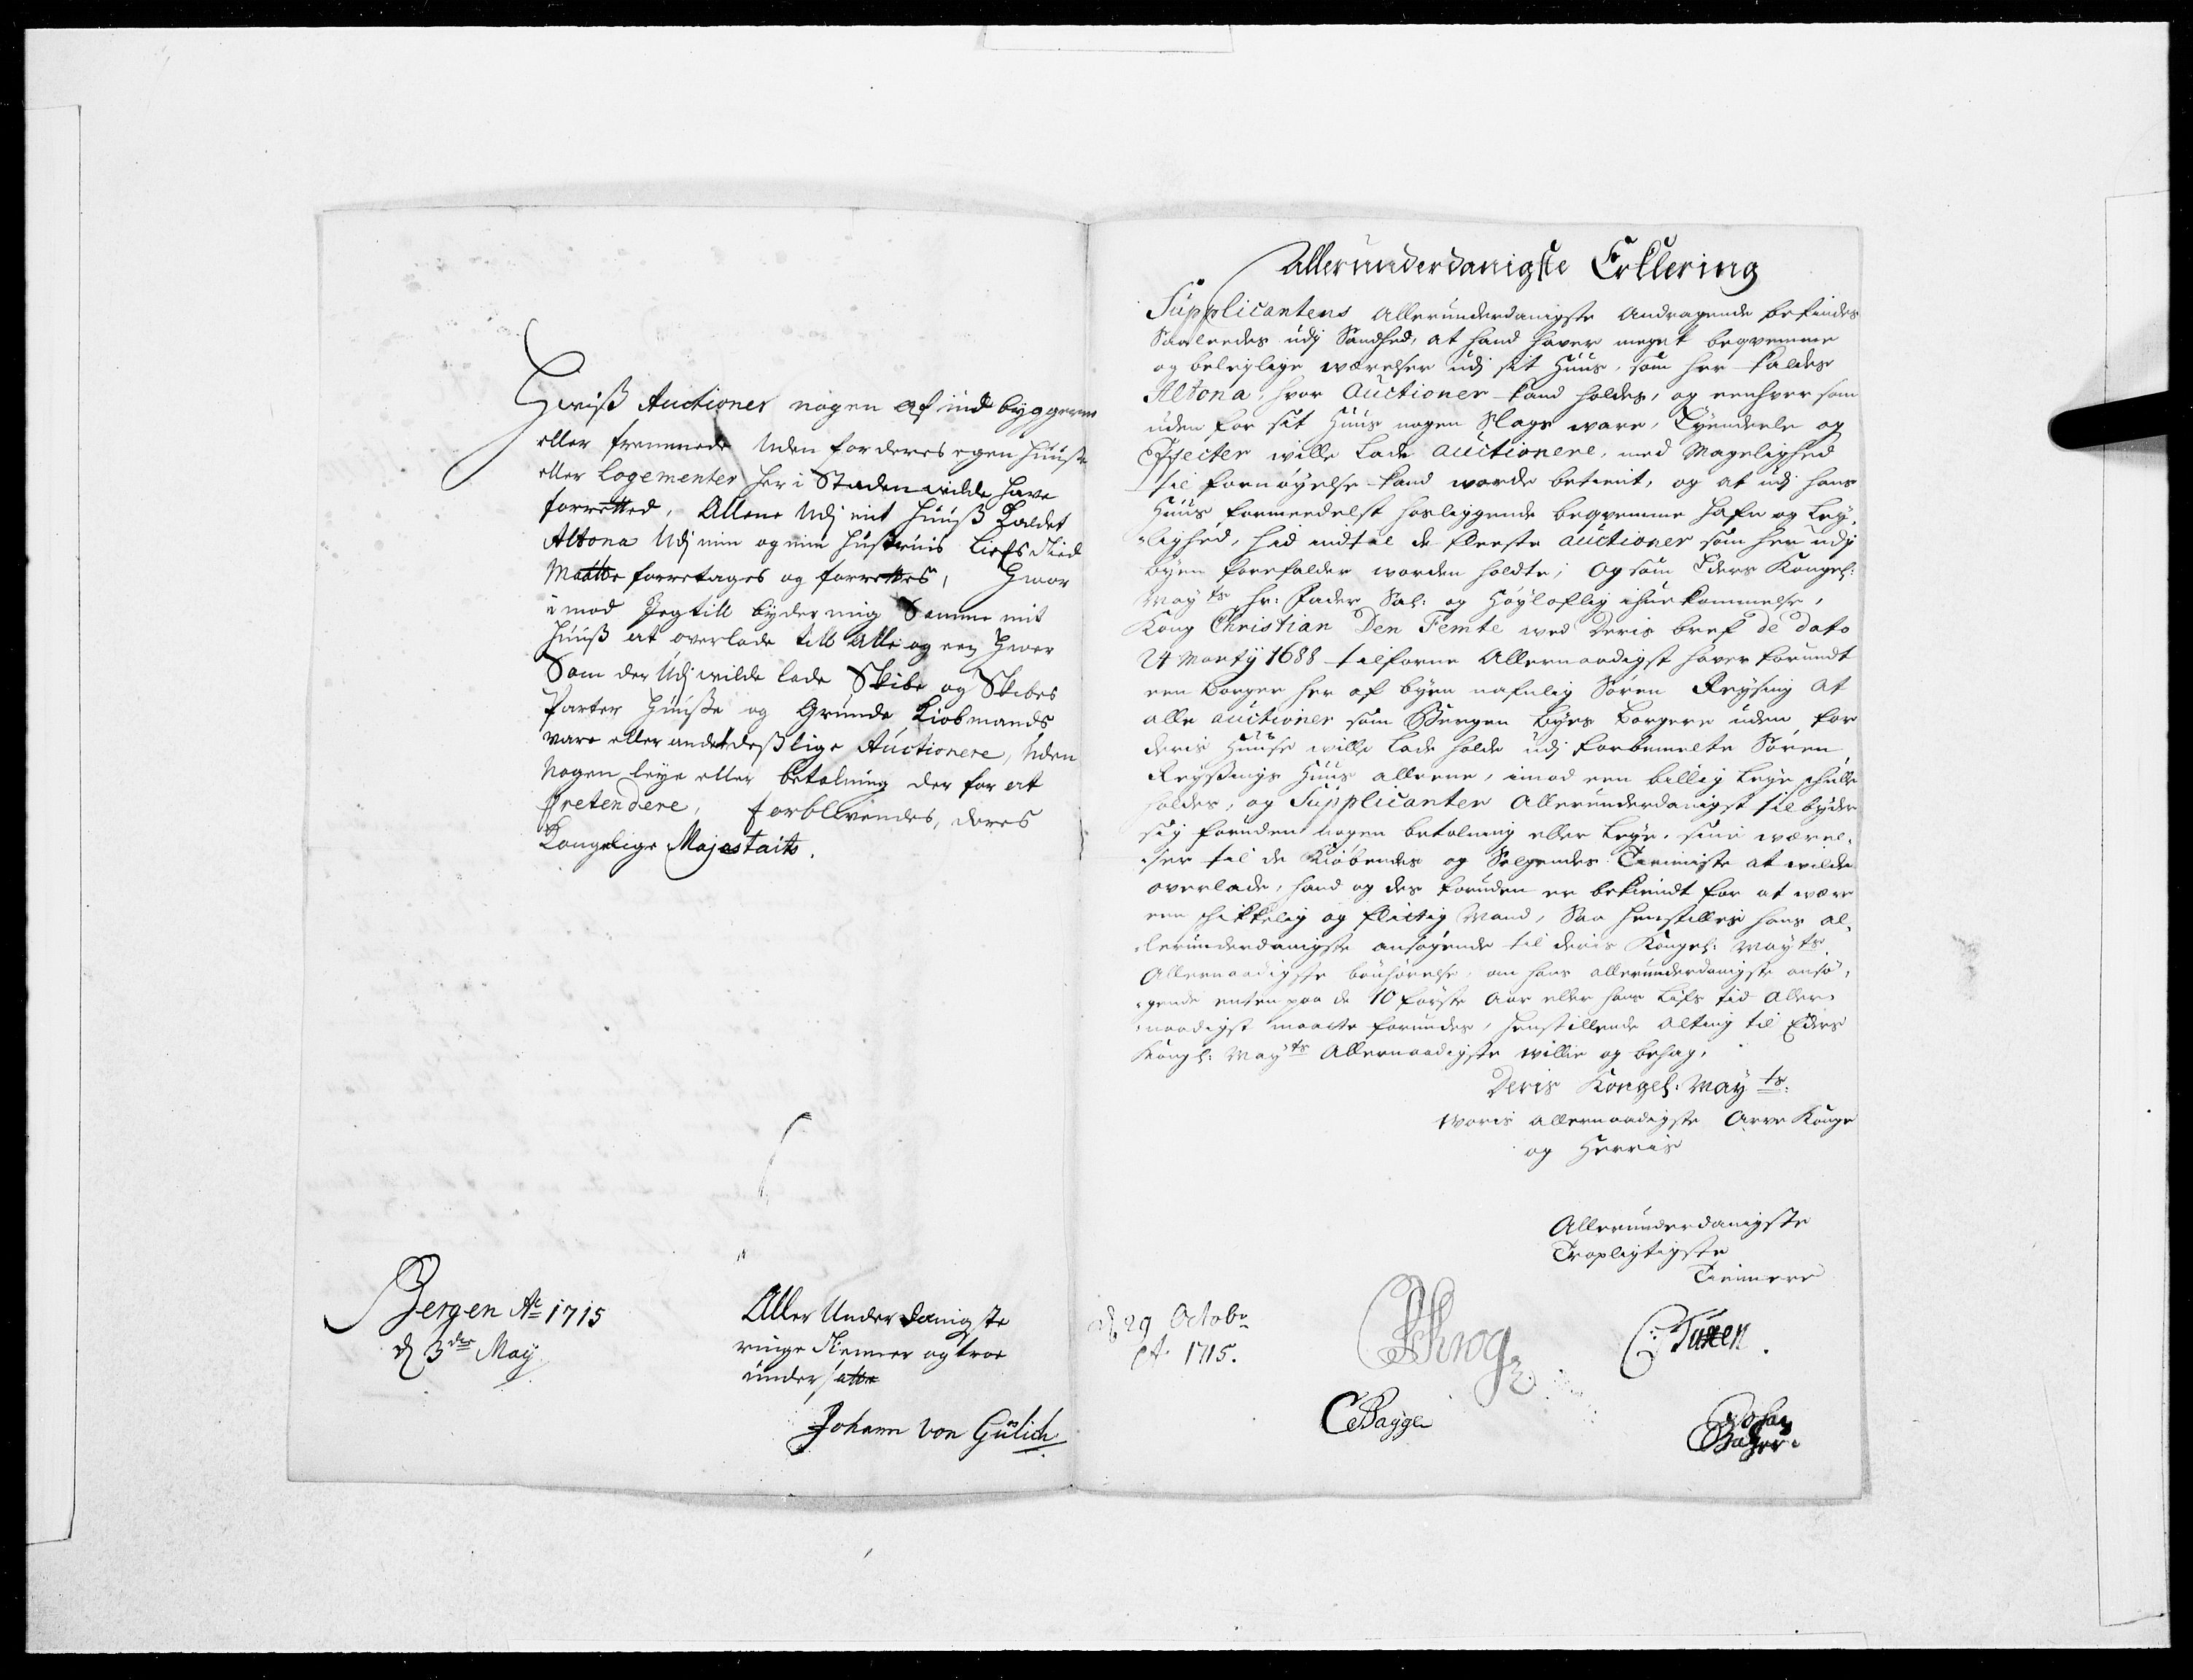 Hwiß Auctioner nogen af ind byggerne
eller fremmede Uden for deres egen Huuße
eller Logementer her i Staden wilde have
forretted, Allene Udj mit Huuß Kaldet
Altona Udj min og min Hustruis Liefs Tied
Maatte forretages og forrettes, Hwor
imod Jeg till byder mig Samme mit
Huuß at overlade till alle og een Hwer
Som der Udj wilde lade Skibe og Skibes
Parter Huuße og Grunde Kiobmands
vare eller andet deßlige Auctionere, Uden
Nogen leye eller betalning der for at
prætendere, forblivendes, deres
Kongelige Majestaits.
Bergen Ao 1715
d 3die May
Aller Underdanigste
ringe Tienner og troe
undersatte
Johann von Gülich
Allerunderdanigste Erklering
Supplicantens Allerunderdanigste Andragende befindes
Saaleedes udj Sandhed, at hand haver meget beqvemme
og beleylige wærelser udj sit Huus, som her kaldes
Altona, hvor Auctioner kand holdes, og eenhver som
uden for sit Huus nogen Slags ware, Eyendeele og
Effecter wille Lade auctionere, med Magelighed
til fornøyelse kand worde betient, og at udj hans
Huus formeedelst hosliggende beqvemme Hafn og Ley,
„lighed, hid indtil de fleeste auctioner som her udj
byen forefalder worden holdte; Og som Eders Kongel:
Mayts Hr: Fader Sal: og Høyloflig ihuekommelse,
Kong Christian Den Femte wed Deris bref de dato
24 Marty 1688 tilforne Allernaadigst haver forundt
een borger her af byen nafnlig Søren Reysing at
alle auctioner som Bergen Byes borgere uden for
deris Huuse wille lade holde udj forbemelte Søren
Reysings Huus alleene, imod een billig Leye skulle
holdes, og Supplicanten Allerunderdanigst tilbyder
sig foruden nogen betalning eller Leye, sine wærel„
„ser til de Kiøbendes og Selgendes Tienniste at wilde
overlade, hand og des foruden er bekiendt for at være
een skikkelig og flittig Mand, Saa henstilles hans al„
„lerunderdanigste ansøgende til deris Kongel: Mayts
Allernaadigste bønhørelse, om hans allerunderdanigste ansø„
„gende enten paa de 10 første Aar eller hans Lifs tid Aller„
„naadigst maatte forundes, henstillende Alting til Eders
Kongl: Mayts Allernaadigste willie og behag,
Deris Kongel: Mayts
woris allernaadigste Arve Konge
og Herris
Allerunderdanigste
Tropligtigste
Tiennere
d 29 Octobr
Ao 1715.
Krog
C: Tuxen.
C Bagge
Johan